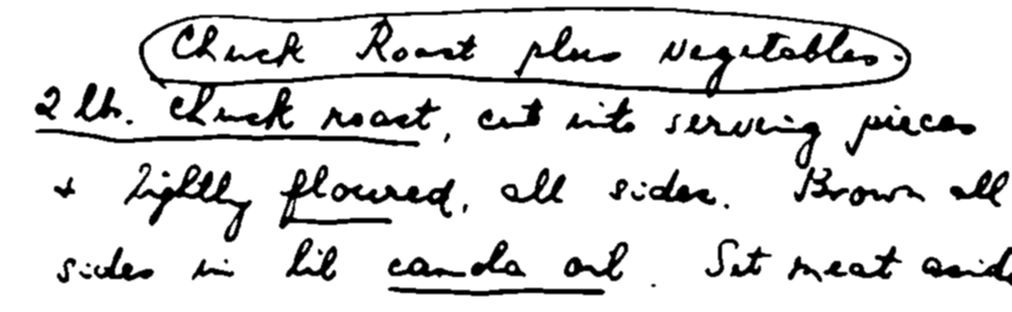 Chuck Roast plus vegetables.
2 lb. Chuck roast, cut into serving pieces
+ lightly floured, all sides. Brown all
sides in lil canola oil. Set meat aside